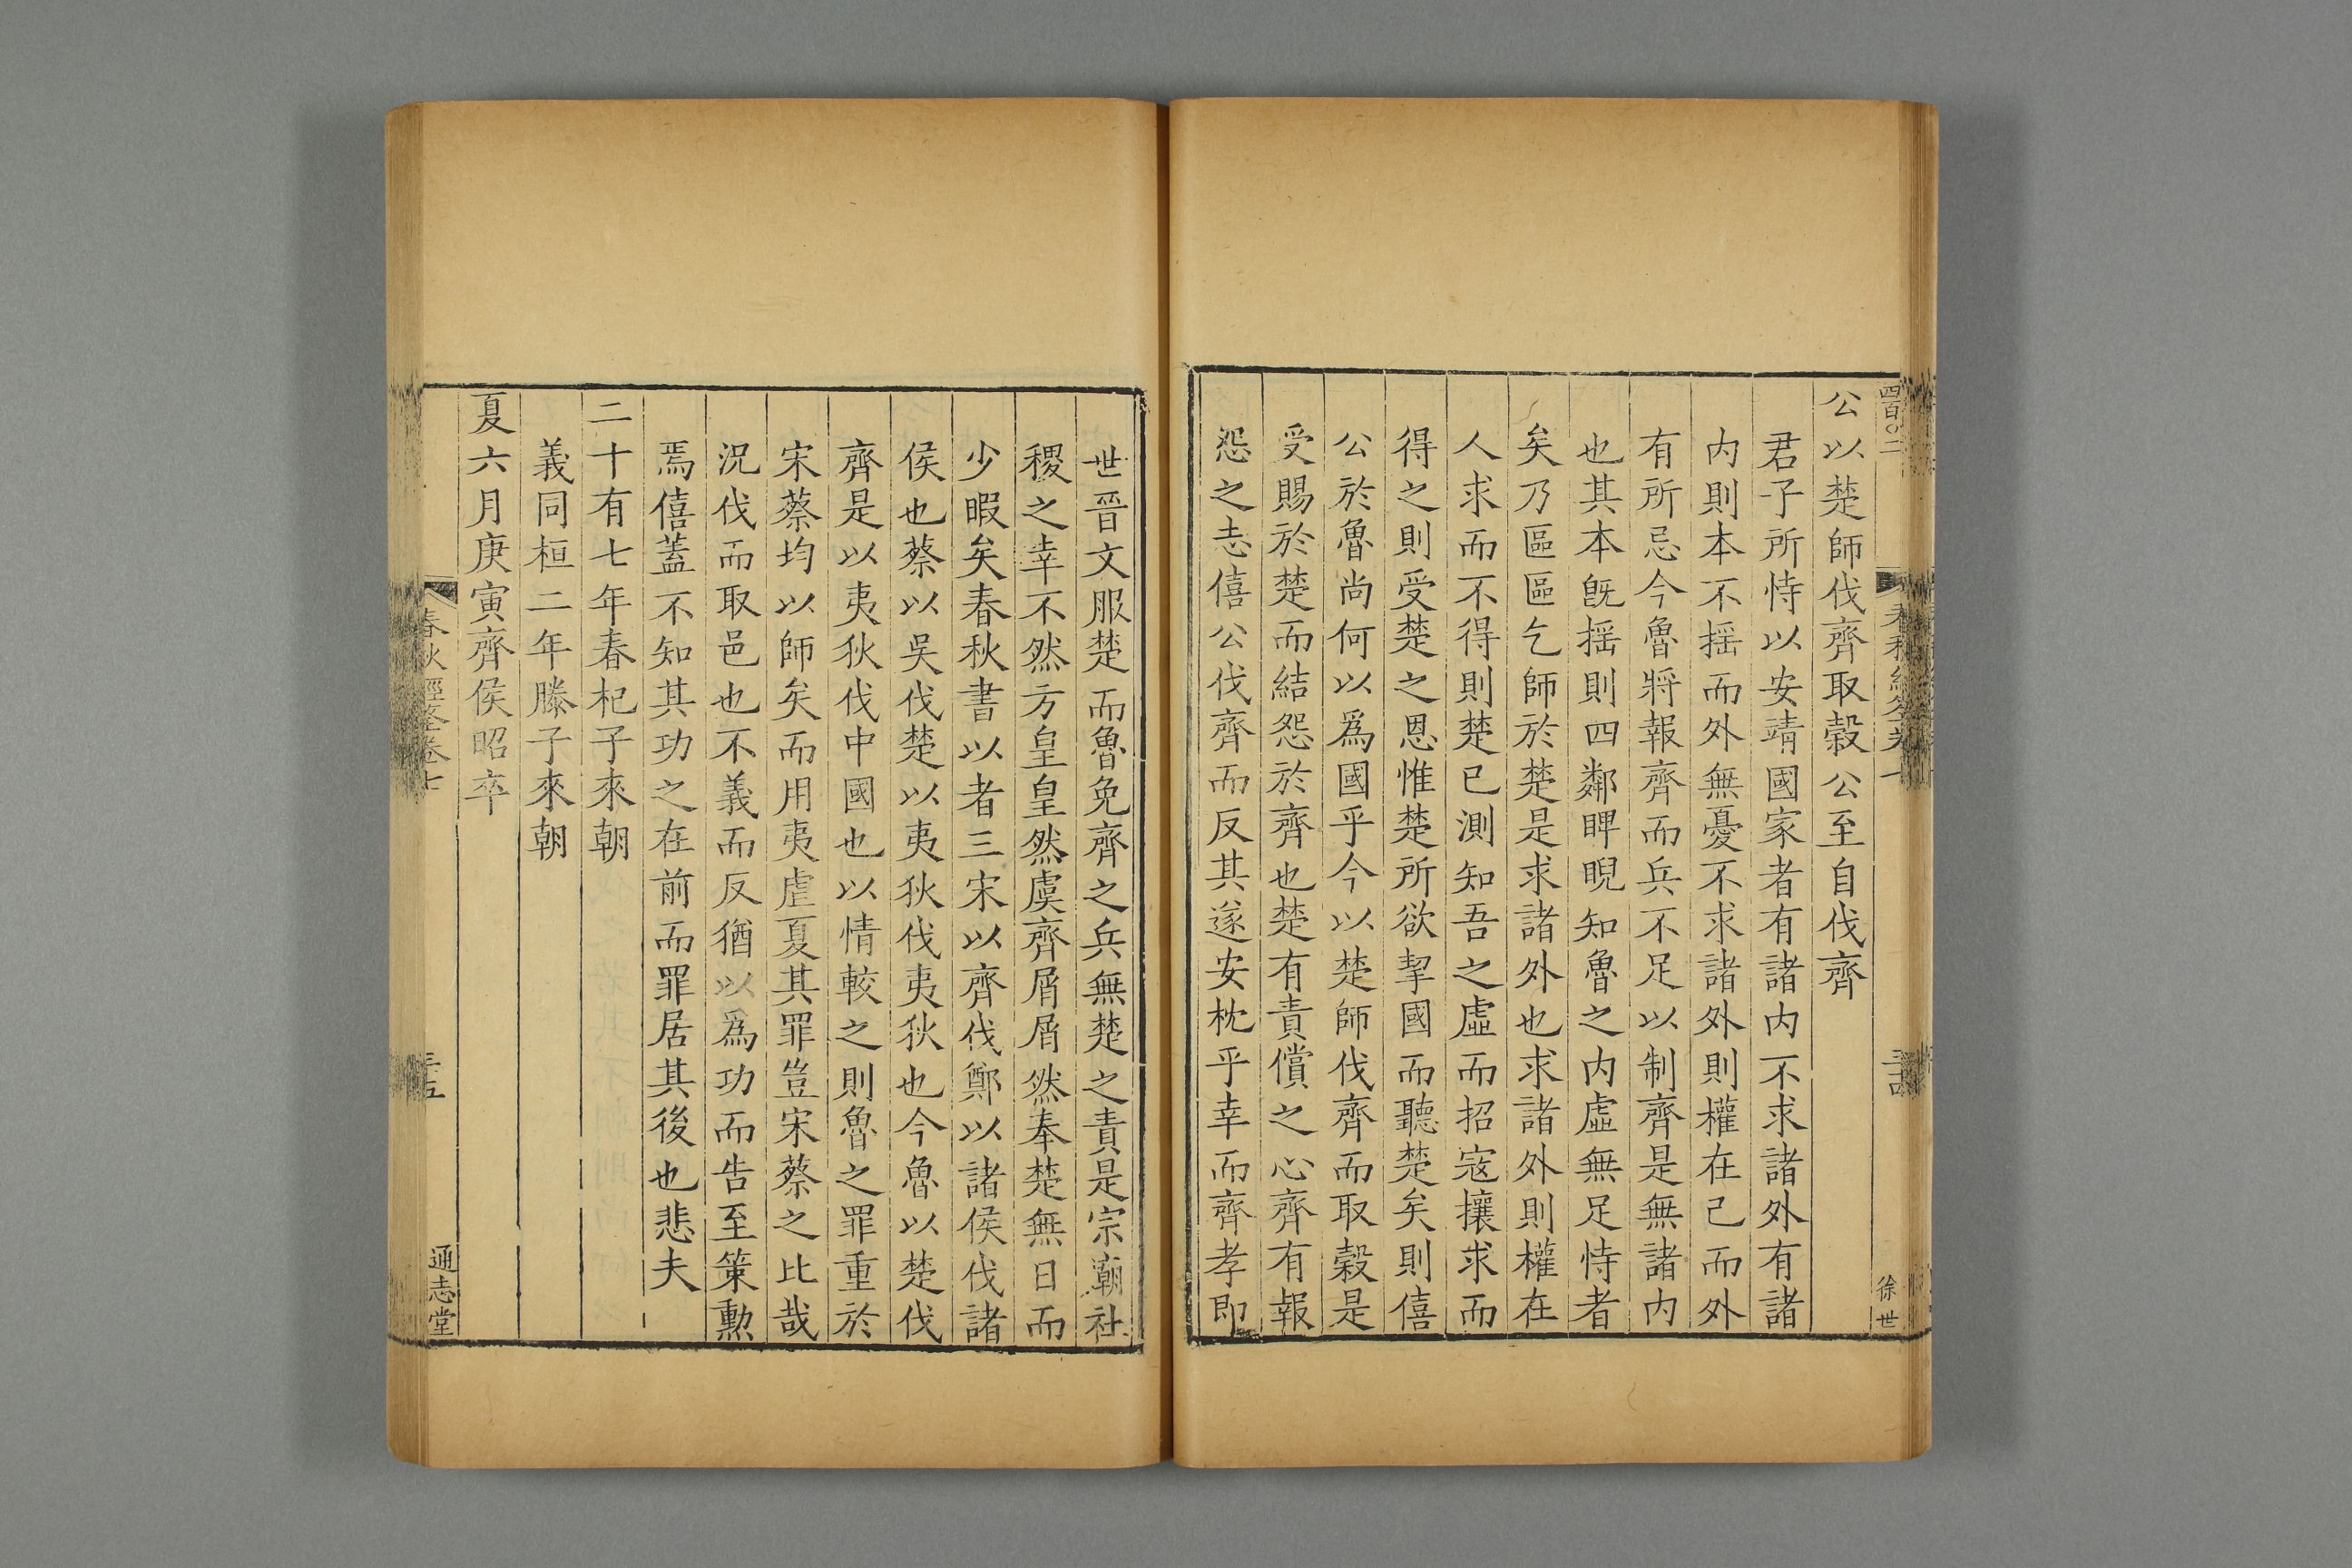 四百〇二
徐世
公以楚師伐齊取穀公至自伐齊
君子所恃以安靖國家者有諸内不求諸外有諸
内則本不揺而外無憂不求諸外則權在己而外
有所忌今魯將報齊而兵不足以制齊是無諸内
也其本旣揺則四鄰睥睨知魯之内虛無足恃者
矣乃區區乞師於楚是求諸外也求諸外則權在
人求而不得則楚已測知吾之虛而招寇攘求而
得之則受楚之恩惟楚所欲挈國而聽楚矣則僖
公於魯尚何以爲國乎今以楚師伐齊而取穀是
受賜於楚而結怨於齊也楚有責償之心齊有報
怨之志僖公伐齊而反其遂安枕乎幸而齊孝即
世晉文服楚而魯免齊之兵無楚之責是宗廟社
稷之幸不然方皇皇然虞齊屑屑然奉楚無日而
少暇矣春秋書以者三宋以齊伐鄭以諸侯伐諸
侯也蔡以吳伐楚以夷狄伐夷狄也今魯以楚伐
齊是以夷狄伐中國也以情較之則魯之罪重於
宋蔡均以師矣而用夷虐夏其罪豈宋蔡之比哉
況伐而取邑也不義而反猶以爲功而告至策勲
焉僖蓋不知其功之在前而罪居其後也悲夫
二十有七年春杞子來朝
義同桓二年滕子來朝
夏六月庚寅齊侯昭卒
春秋經筌卷七
三十五
通志堂